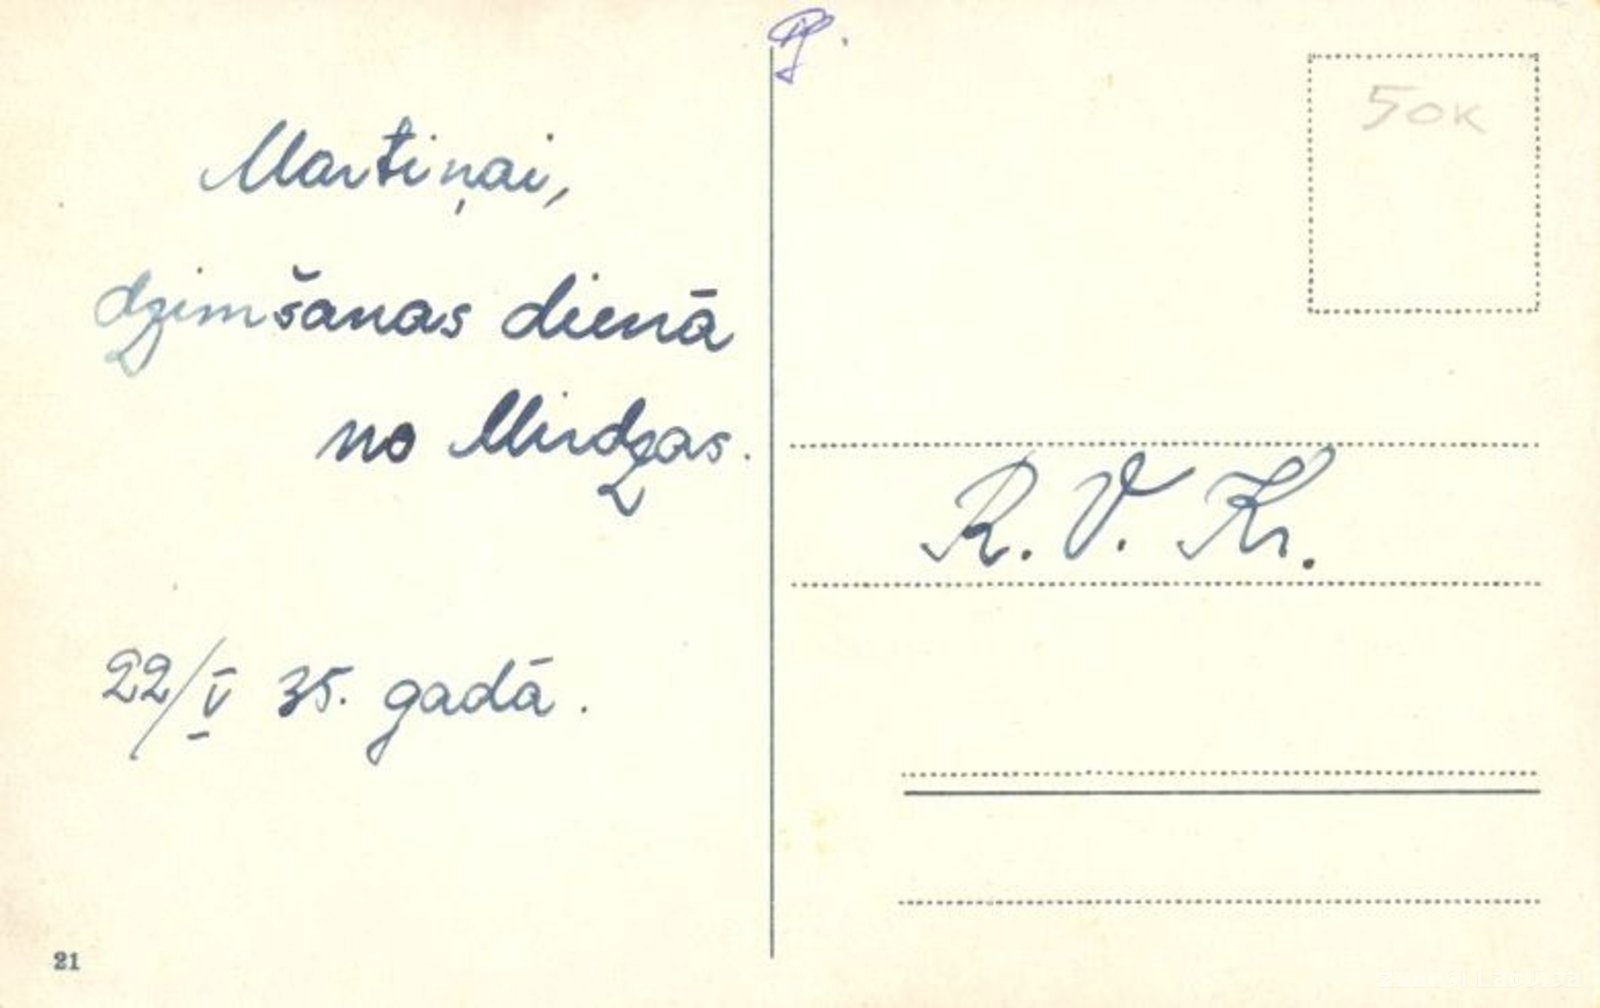 Martiņai,
dzimšanas dienā
no Mirdzas.
22/V 35. gadā.
21
50K
R. V. Kr.